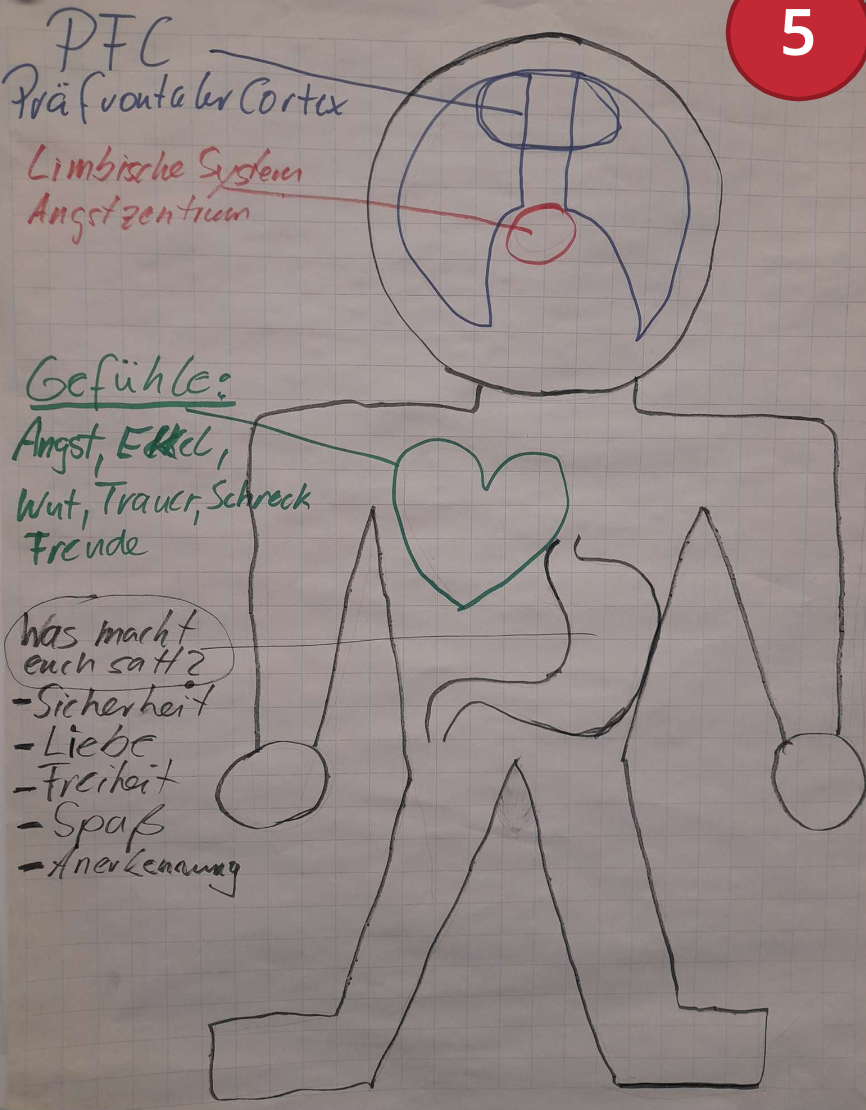 5
PFC
Präfrontaler Cortex
Limbische System
Angstzentrum
Gefühle:
Angst, Ekel,
Wut, Trauer, Schreck
Freude
Was macht
euch satt?
- Sicherheit
- Liebe
- Freiheit
- Spaß
- Anerkennung